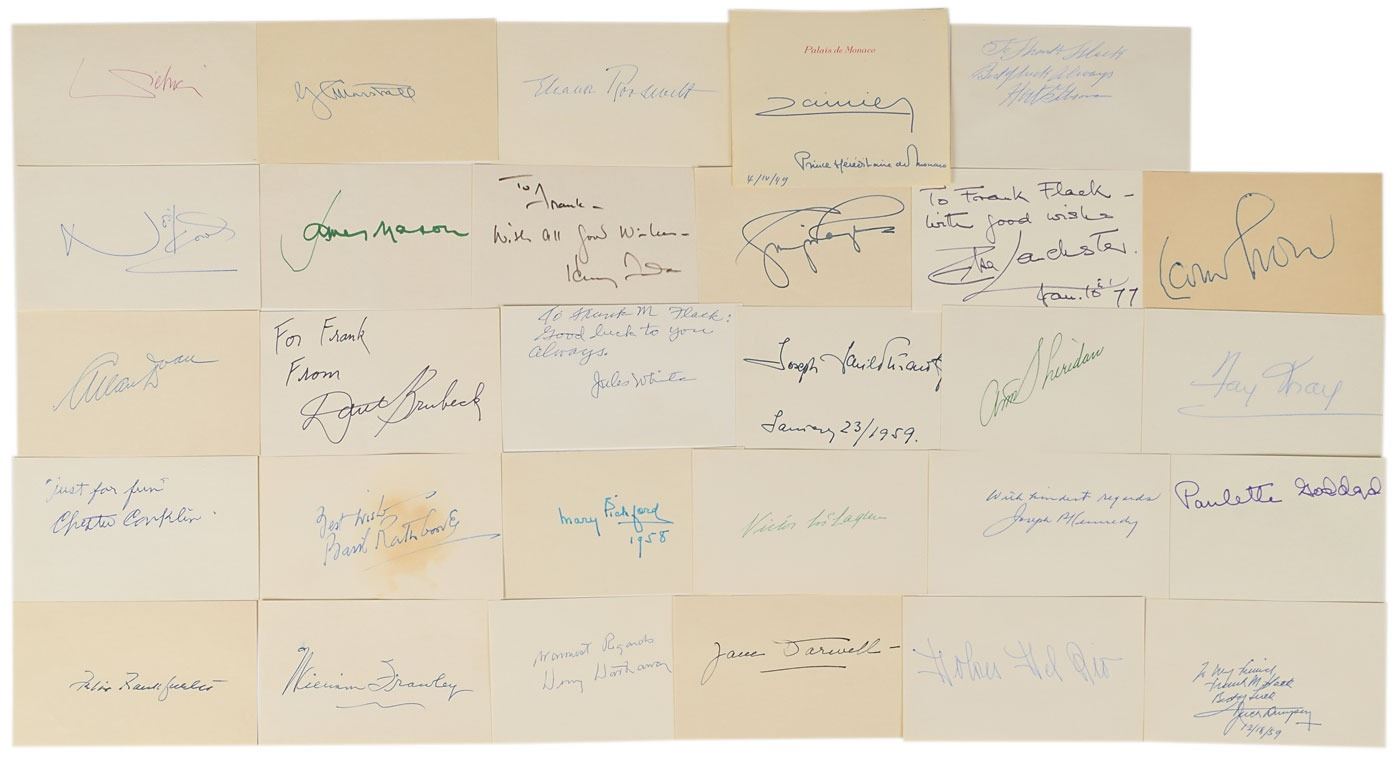 Dietrich
G C Marshall
Eleanor Roosevelt
Palais de Monaco
Rainier
Prince Héréditaire de Monaco
4/10/49
To Frank Flack
Best of luck always
Noël Coward
James Mason
To Frank -
With all Good Wishes -
Henry Fonda
To Frank Flack -
With good wishes
Elsa Lanchester.
Jan. 10 77
Allan Dwan
For Frank
From
Dave Brubeck
To Frank M Flack:
Good luck to you
always.
Jules White
Joseph
January 23/1959.
Ann Sheridan
Fay Wray
"just for fun"
Chester Conklin.
Best Wishes
Basil Rathbone
Mary Pickford
1958
Victor McLaglen
With kindest regards
Joseph P Kennedy
Paulette Goddard
Felix Frankfurter
William Frawley
Warmest Regards
Henry Hathaway
Jane Darwell -
Dolores Del Rio
To My friend
Frank M Flack
Best of luck
Jack Dempsey
12/18/59